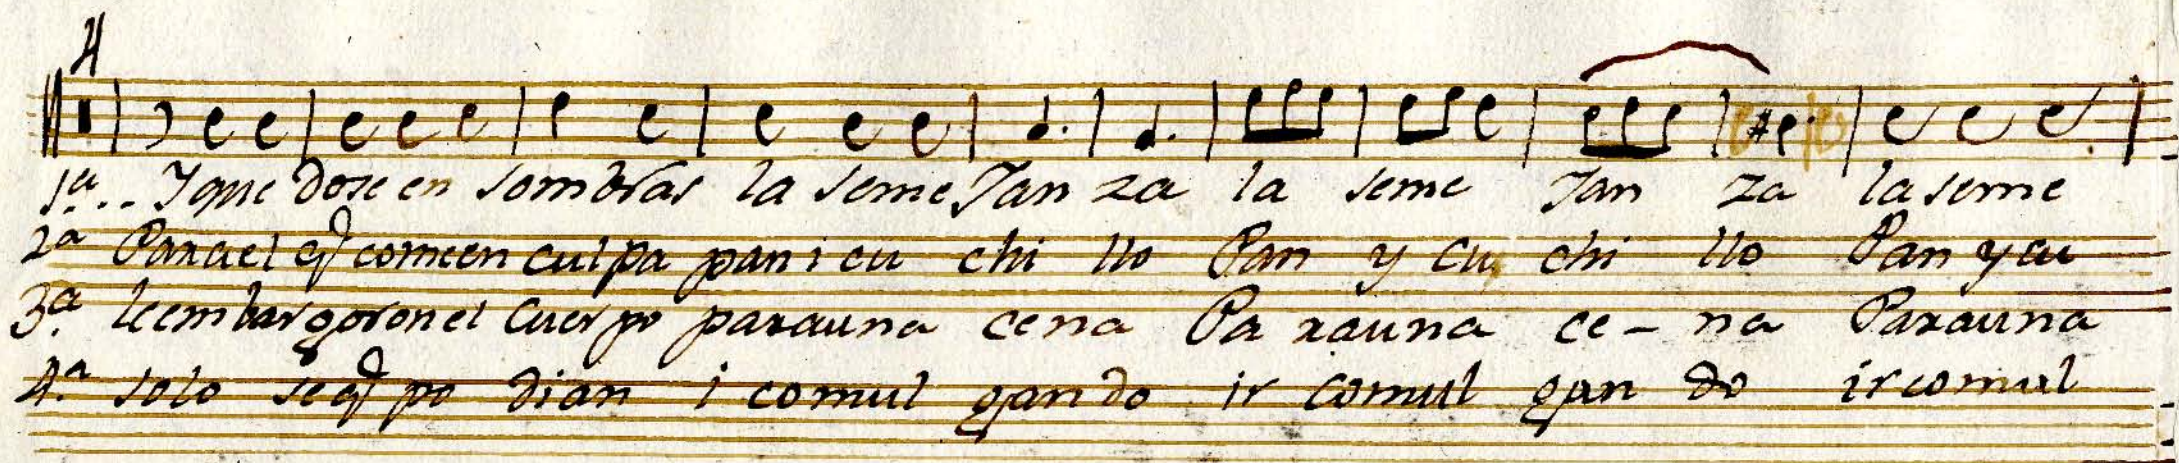 1ª.. Y que dose en sombras la seme Jan za la seme Jan za la seme
2ª Para el q̃ come en culpa pan i cu chi llo Pan y cu chi llo Pan y cu
3ª. le embargoron el cuerpo para una cena Pa ra una ce - na Para una
4.ª solo se q̃ po dian i comul gan do ir comul gan do ir comul